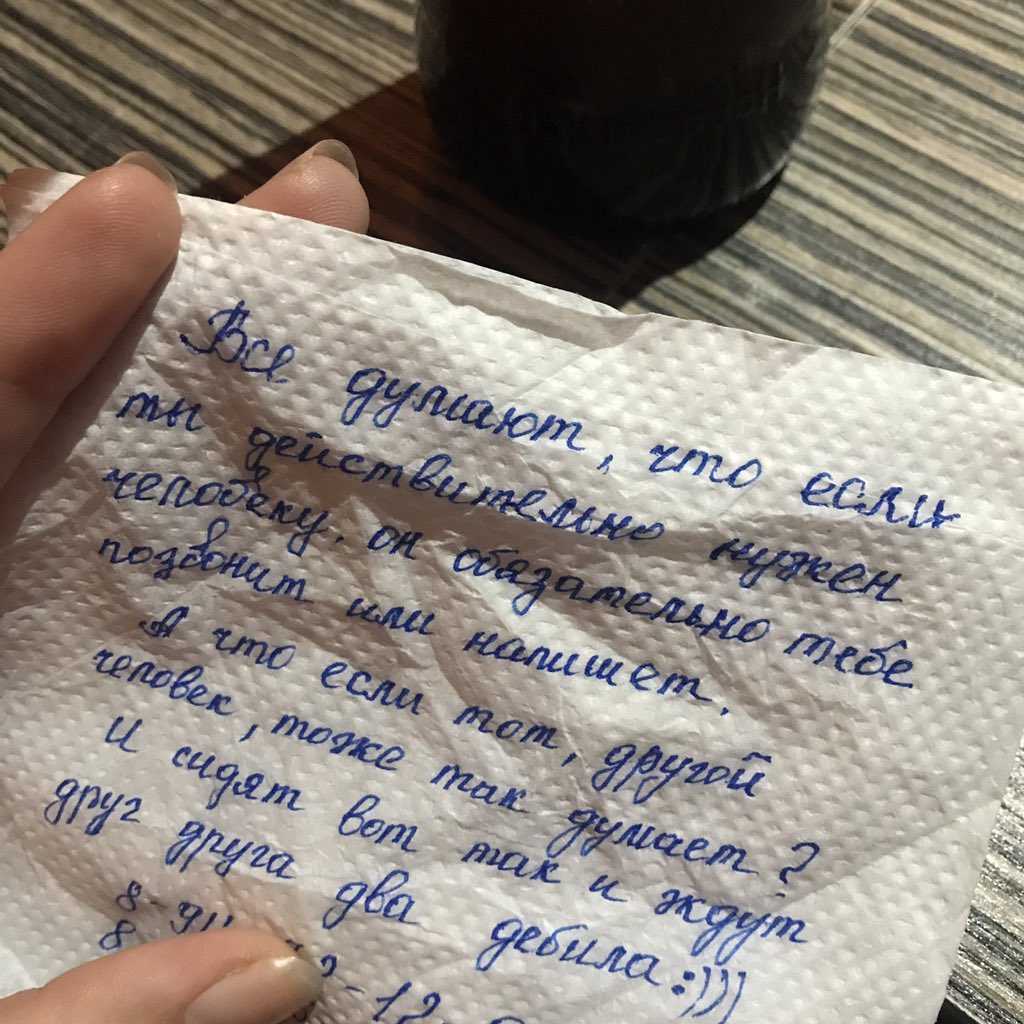 Все думают, что если
ты действительно нужен
человеку, он обязательно тебе
позвонит или напишет.
А что если тот, другой
человек, тоже так думает?
И сидят вот так и ждут
друг друга два дебила:)))
8
8 -12